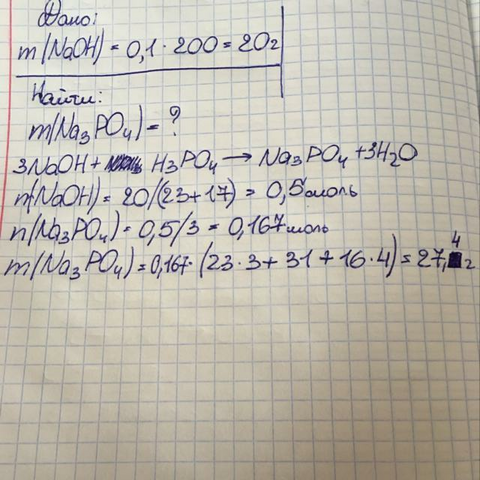 Дано:
m(NaOH) = 0,1 · 200 = 20г
Найти:
m(Na₃PO₄) = ?
3NaOH + H₃PO₄ → Na₃PO₄ + 3H₂O
n(NaOH) = 20/(23+17) = 0,5моль
n(Na₃PO₄) = 0,5/3 = 0,167моль
m(Na₃PO₄) = 0,167 · (23·3 + 31 + 16·4) = 27,4г